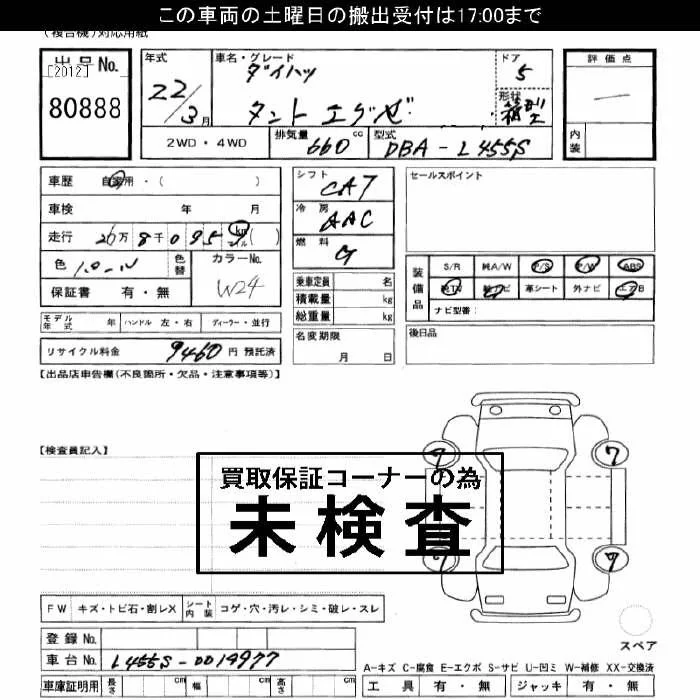 この車両の土曜日の搬出受付は17:00まで
(複合機)対応用紙
出品No.
[2012]
80888
年式
22/3月
車名・グレード
ダイハツ
タント エグゼ
ドア
5
形状
箱型
評価点
―
内装
2WD・4WD
排気量 660 cc
型式 DBA-L455S
車歴 自家用・( )
車検 年 月
走行 26万8千095 km マイル ( )
色 パール
色替
カラーNo.
W24
保証書 有・無
シフト CAT
冷房 AAC
燃料 G
乗車定員 名
積載量 kg
総重量 kg
名変期限
月 日
セールスポイント
装備品
S/R 純A/W P/S P/W ABS
純TV 純ナビ 革シート 外ナビ エアB
ナビ型番:
モデル年式 年 ハンドル 左・右 ディーラー・並行
後日品
リサイクル料金 9460 円 預託済
【出品店申告欄(不良箇所・欠品・注意事項等)】
【検査員記入】
買取保証コーナーの為
未検査
7
7
7
7
FW キズ・トビ石・割レX
シート内装 コゲ・穴・汚レ・シミ・破レ・スレ
スペア
登録No.
車台No. L455S-0014977
A-キズ C-腐食 E-エクボ S-サビ U-凹ミ W-補修 XX-交換済
車庫証明用 長さ cm 幅 cm 高さ cm
工具 有・無 ジャッキ 有・無